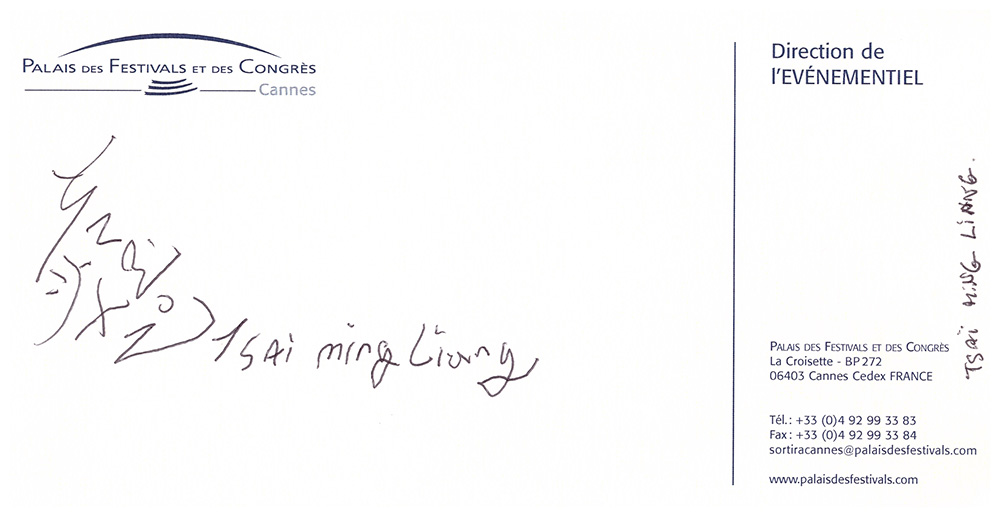 PALAIS DES FESTIVALS ET DES CONGRÈS
Cannes
TSAi ming Liang
Direction de
l'EVÉNEMENTIEL
TSAÏ MING LIANG.
PALAIS DES FESTIVALS ET DES CONGRÈS
La Croisette - BP 272
06403 Cannes Cedex FRANCE
Tél.: +33 (0)4 92 99 33 83
Fax: +33 (0)4 92 99 33 84
sortiracannes@palaisdesfestivals.com
www.palaisdesfestivals.com